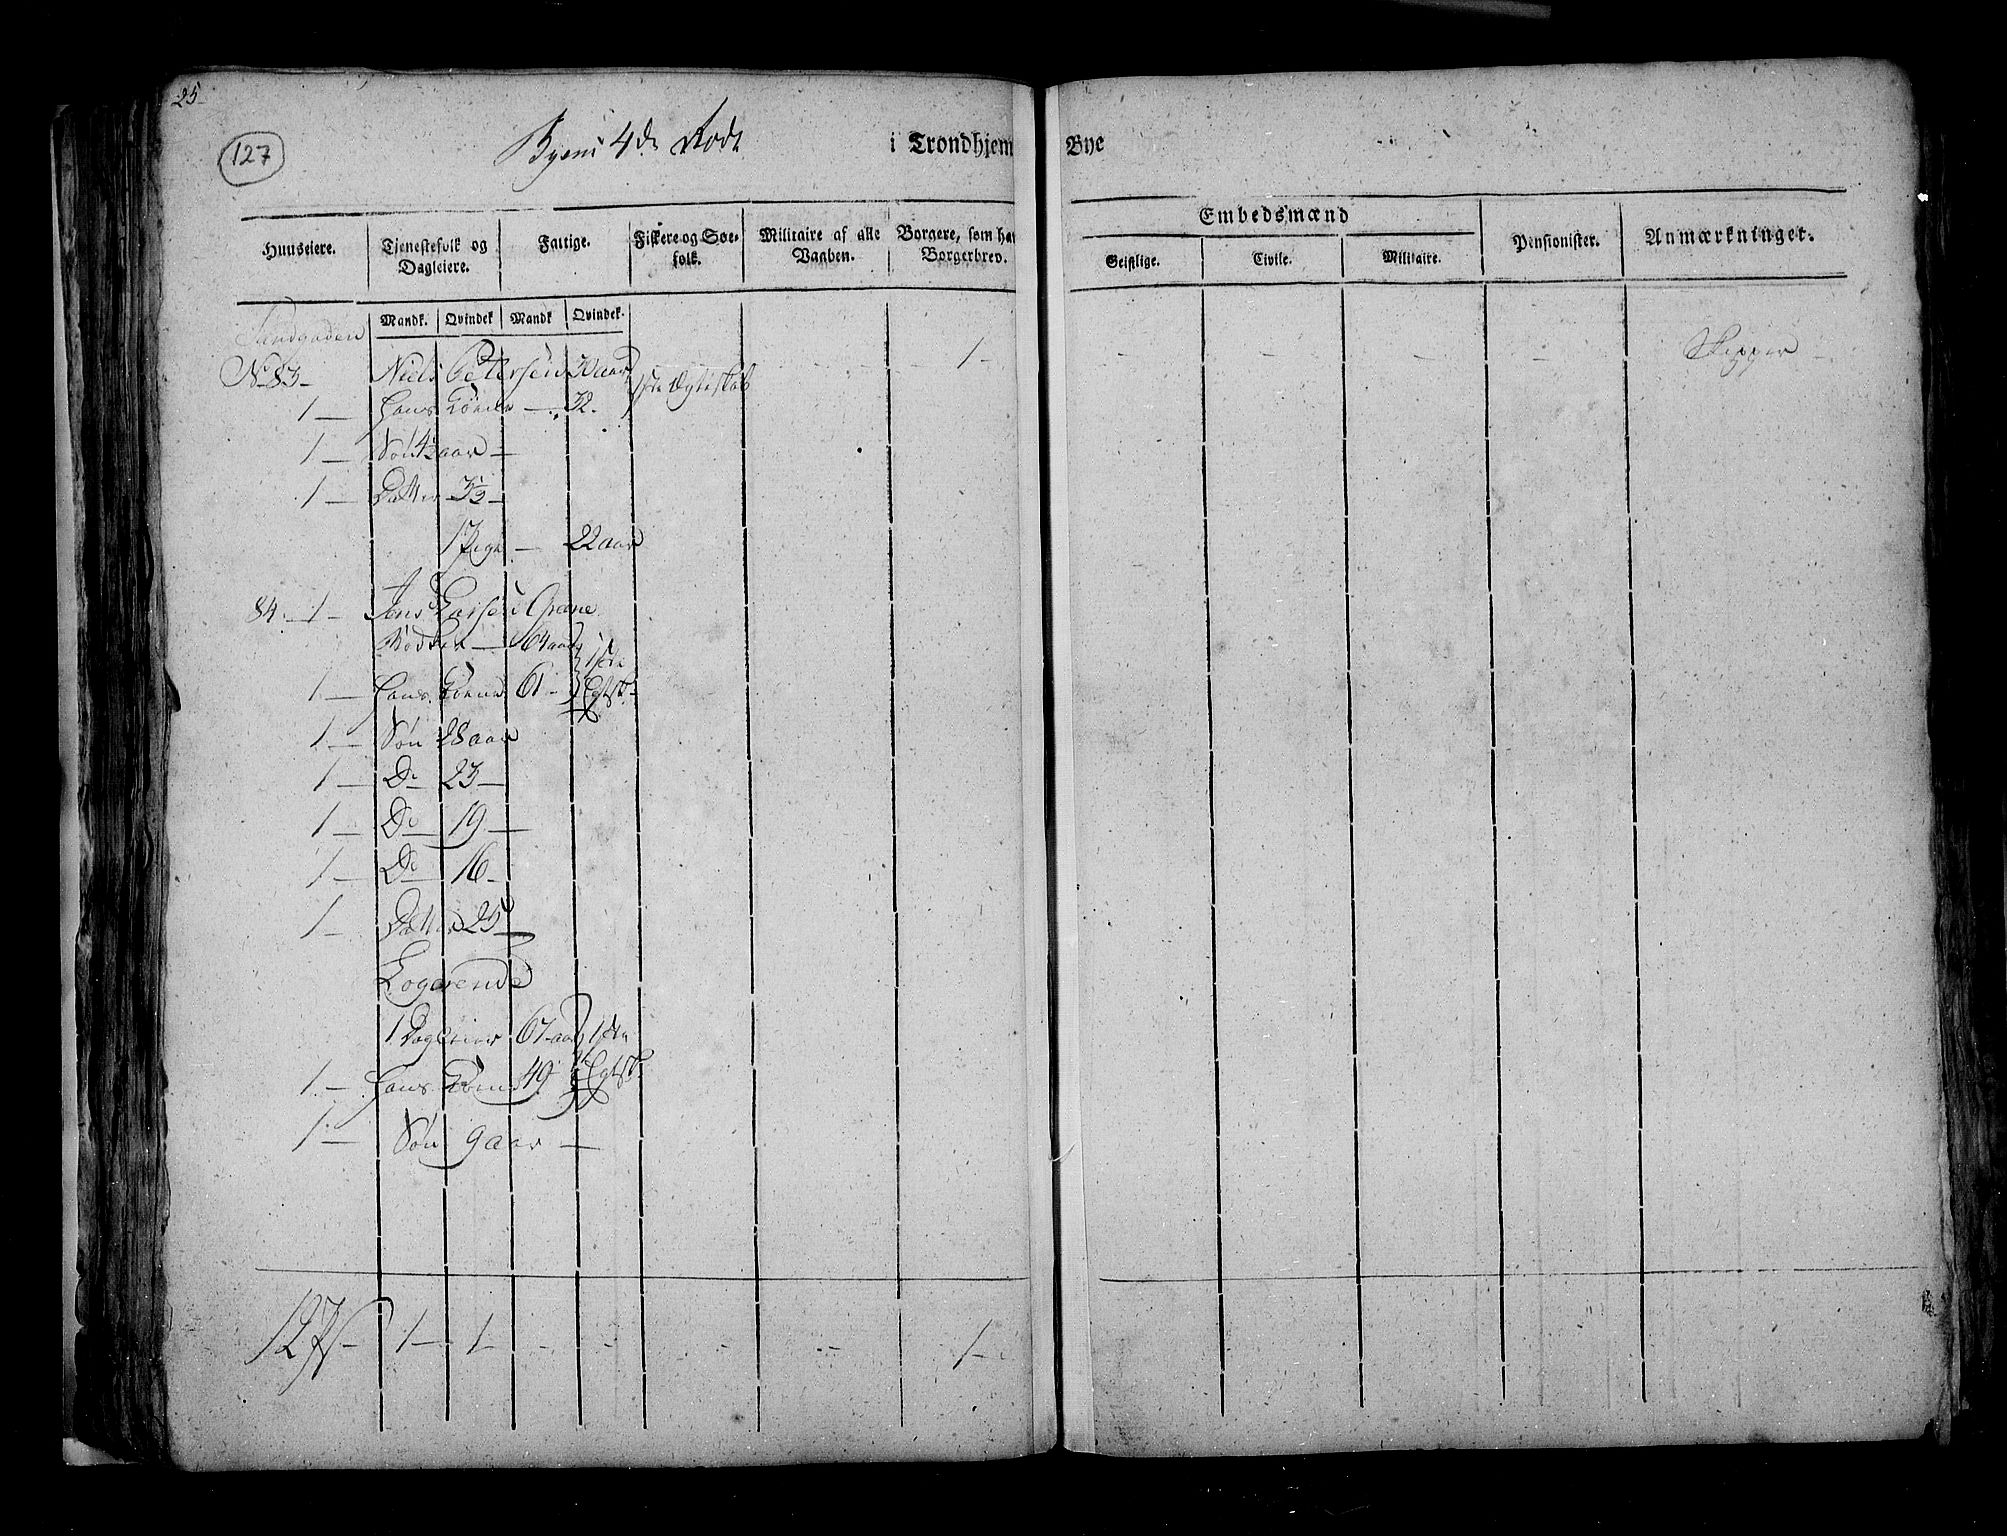 25
127
Byens 4de Rode i Trondhjem Bye
Huuseiere. Tjenestefolk og Dagleiere. Fattige. Fiskere og Søe-folk. Militaire af alle Vaaben. Borgere, som har Borgerbrev. Embedsmænd Pensionister. Anmærkninger.
Geistlige. Civile. Militaire.
Mandk. Qvindek Mandk Qvindek.
Sandgaden
No 83 - Niels Petersen 30 aar 1ste Ægteskab 1 - Skipper
1 - Hans Kone - 32.
1 - Søn 4½ aar -
1 - Datter 3½ -
1 Pige - 22 aar
84. - 1 - Jens Larsen Græne
Bødker - 64 aar 1ste
1 - Hans Kone 61 - Egtsk.
1 - Søn 28 aar
1 - Do 23 -
1 - Do 19 -
1 - Do 16 -
1 - Datter 25 -
Logerende
1 Dagleier 67 aar 1ste
1 - Hans Kone 49 Egtsk.
1 - Søn 9 aar -
12 - 1 - 1 - - - - - 1 -